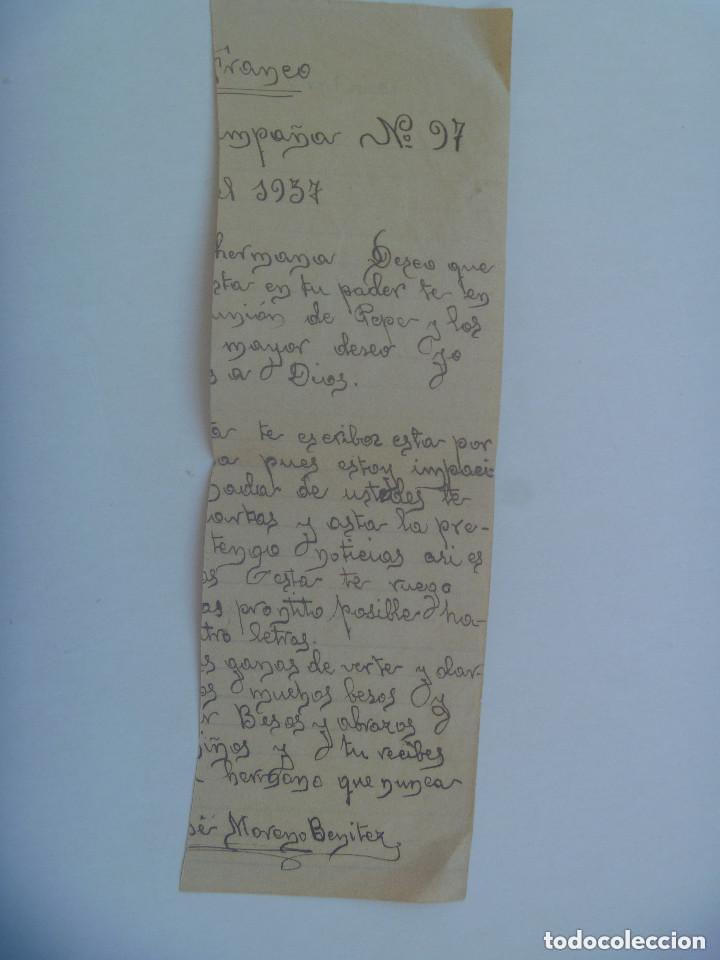 Franco
mpaña Nº 97
el 1937
hermana Deseo que
rta en tu pader te en
unión de Pepe y los
mayor deseo yo
s a Dios.
ta te escriboz esta por
a pues estoy impaci
nada de ustedes te
cartas y asta la pre-
tengo noticias asi es
os esta te ruego
as prontito posible ha-
tro letras.
s ganas de verte y dar-
os muchos besos y
r Besos y abrazos
iños y tu recibes
hermano que nunca
sé Moreno Benitez
todocoleccion
todocoleccion.net